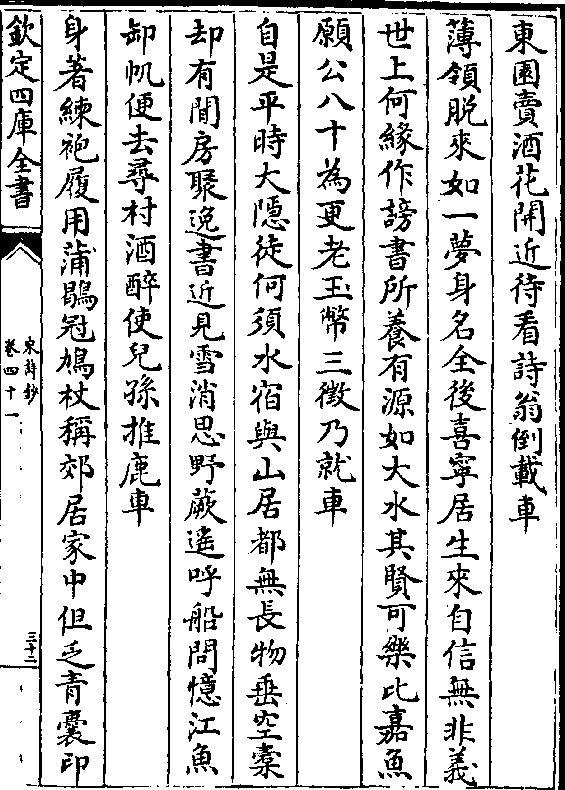 東園賣酒花開近待看詩翁倒載車
薄領脱來如一夢身名全後喜寧居生來自信無非義
世上何緣作謗書所養有源如大水其賢可樂比嘉魚
願公八十為更老玉幣三徵乃就車
自是平時大隱徒何須水宿與山居都無長物垂空橐
却有閒房聚逸書近見雪消思野蕨遥呼船問憶江魚
卸帆便去尋村酒醉使兒孫推鹿車
身著練袍履用蒲鶡冠鳩杖稱郊居家中但乏青囊印
欽定四庫全書
宋詩鈔
卷四十一
三十二